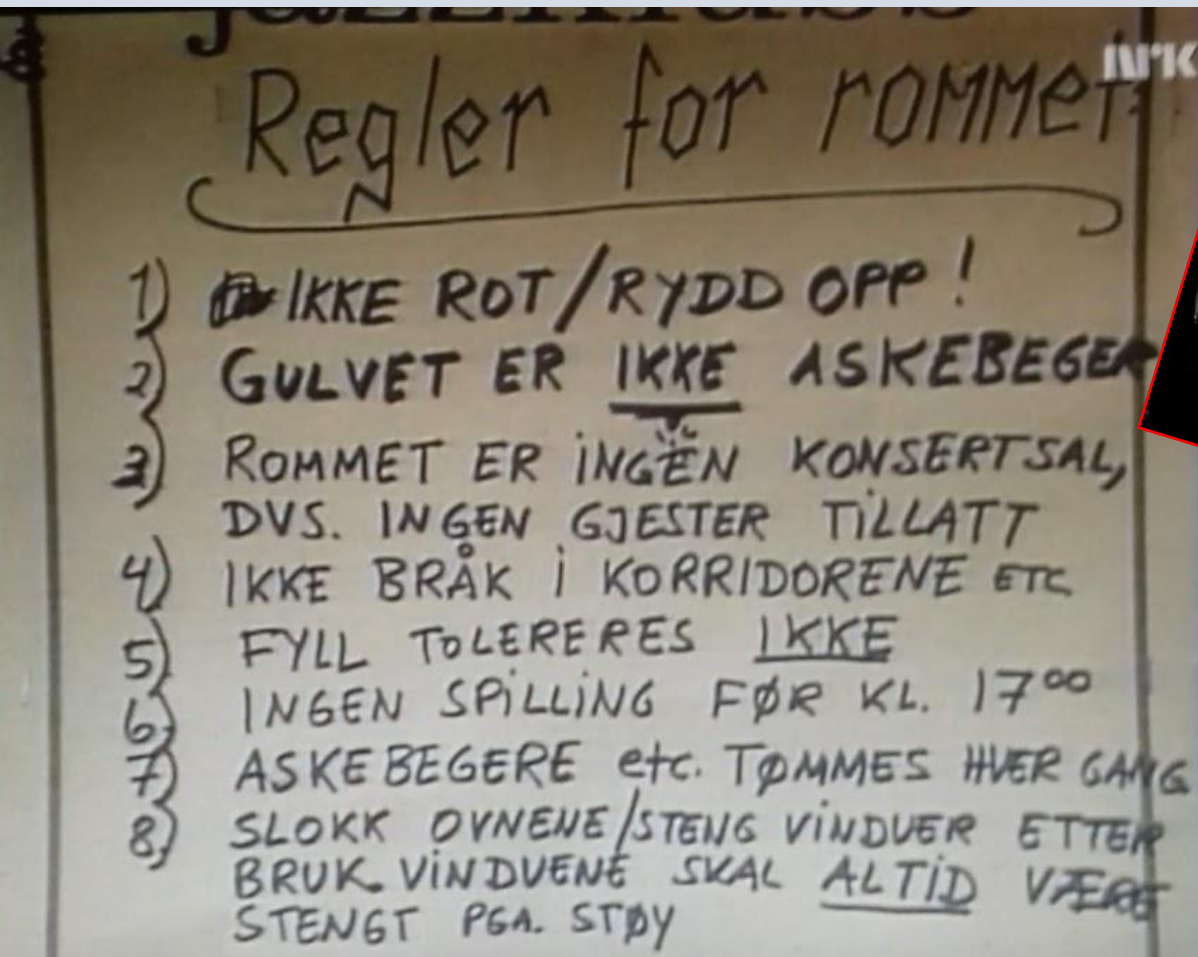 NRK
Regler for rommet:
1) IKKE ROT/RYDD OPP!
2) GULVET ER IKKE ASKEBEGER
3) ROMMET ER INGEN KONSERTSAL,
DVS. INGEN GJESTER TILLATT
4) IKKE BRÅK I KORRIDORENE ETC
5) FYLL TOLERERES IKKE
6) INGEN SPILLING FØR KL. 17⁰⁰
7) ASKEBEGERE etc. TØMMES HVER GANG
8) SLOKK OVNENE/STENG VINDUER ETTER
BRUK. VINDUENE SKAL ALTID VÆRE
STENGT PGA. STØY